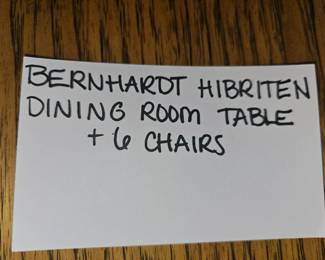 BERNHARDT HIBRITEN
DINING ROOM TABLE
+ 6 CHAIRS